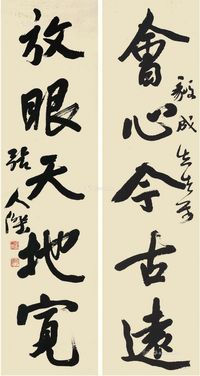 會心今古遠
毅成先生
放眼天地寬
張人傑